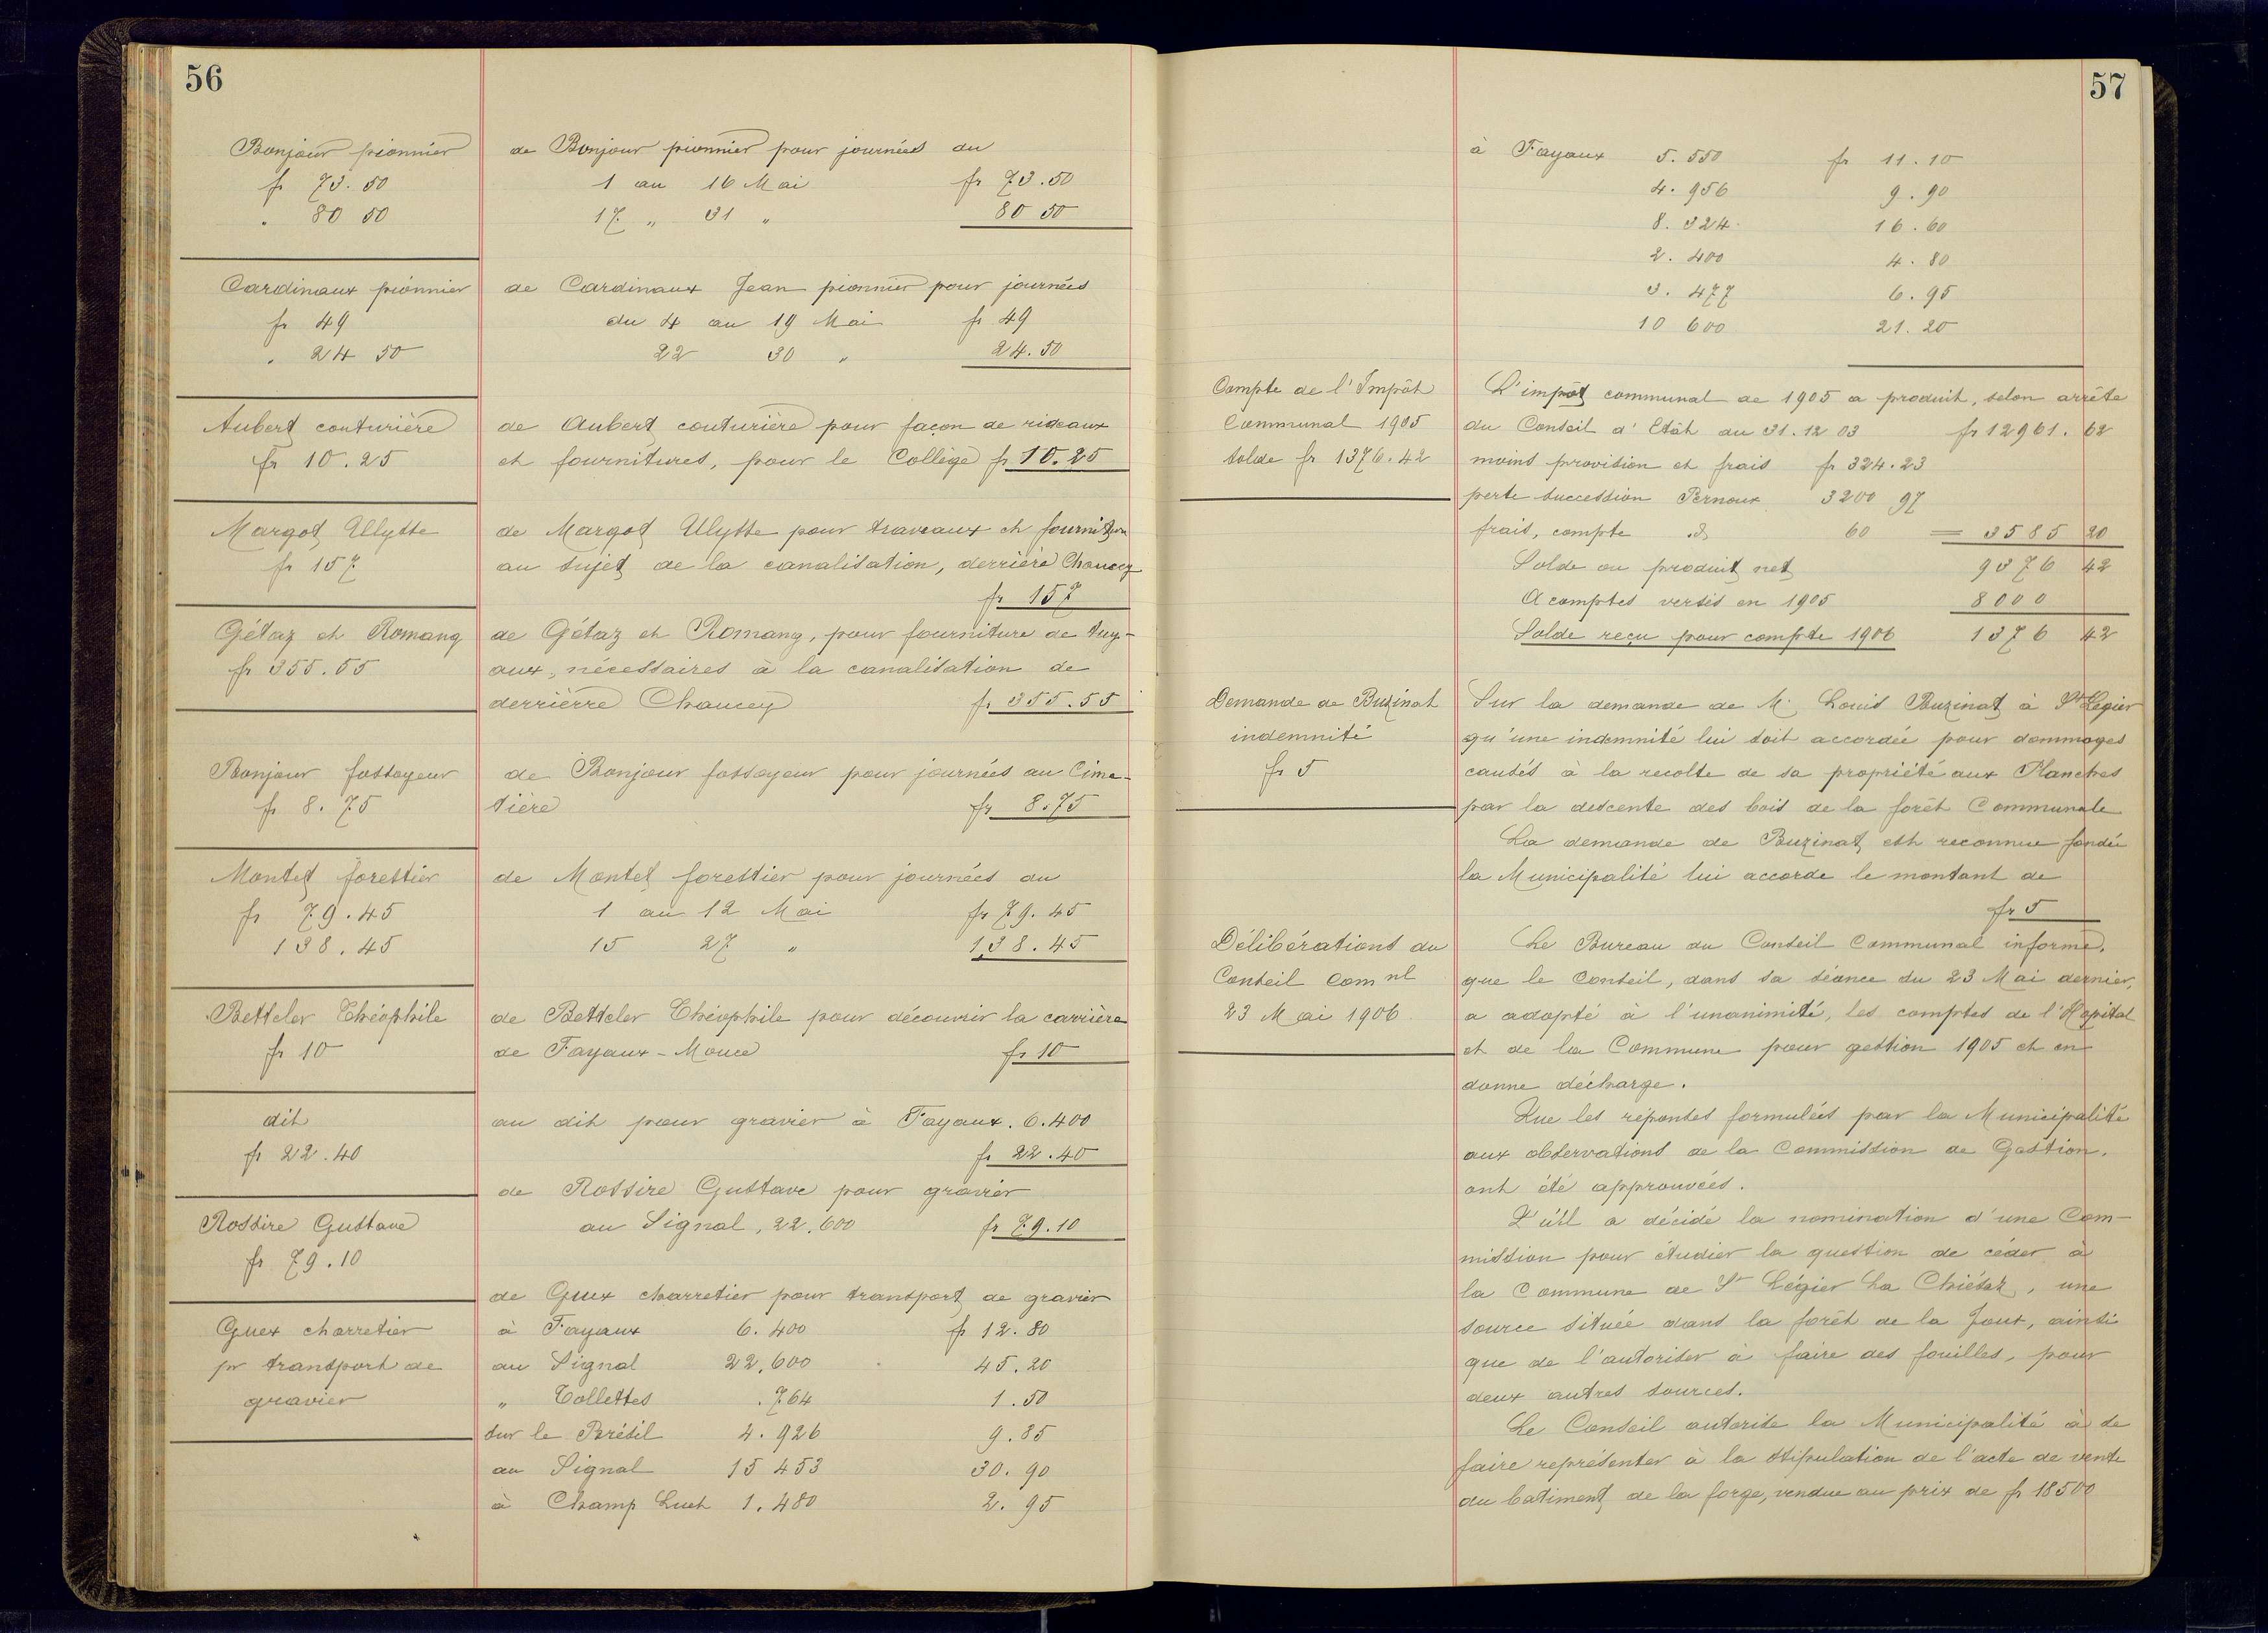 56
Bonjour pionnier
fr 73.50
" 80 50
de Bonjour pionnier pour journées du
1 au 16 Mai fr 73.50
17 " 31 " 80 50
Cardinaux pionnier
fr 49
" 24 50
de Cardinaux Jean pionnier pour journées
du 4 au 19 Mai fr 49
22 30 " 24.50
Aubert couturière
fr 10.25
de Aubert couturière pour façon de rideaux
et fournitures, pour le Collège fr 10.25
Margot Ulysse
fr 157
de Margot Ulysse pour travaux et fournitures
au sujet de la canalisation, derrière Chaucey
fr 157
Gétaz et Romang
fr 355.55
de Gétaz et Romang, pour fourniture de tuy-
aux, nécessaires à la canalisation de
derrièrre Chaucey fr 355.55
Bonjour fossoyeur
fr 8.75
de Bonjour fossoyeur pour journées au Cime-
tière fr 8.75
Montet forestier
fr 79.45
138.45
de Montet forestier pour journées du
1 au 12 Mai fr 79.45
15 27 " 138.45
Betteler Théophile
fr 10
de Betteler Théophile pour découvrir la carrière
de Fayaux-Mouce fr 10
dit
fr 22.40
au dit pour gravier à Fayaux. 6.400
fr 22.40
Rossire Gustave
fr 79.10
de Rossire Gustave pour gravier
au Signal, 22.600 fr 79.10
Guex charretier
pr transport de
gravier
de Guex charretier pour transport de gravier
à Fayaux 6.400 fr 12.80
au Signal 22.600 45.20
" Tollettes .764 1.50
sur le Brésil 4.926 9.85
au Signal 15 453 30.90
à Champ Luet 1.480 2.95
57
à Fayaux 5.550 fr 11.10
4.956 9.90
8.324 16.60
2.400 4.80
3.477 6.95
10 600 21.20
Compte de l'Impôt
Communal 1905
solde fr 1376.42
L'impôt communal de 1905 a produit, selon arrête
du Conseil d'Etât du 31.12 03 fr 12961.62
moins provision et frais fr 324.23
perte succession Pernoux 3200 97
frais, compte d 60 = 3585 20
Solde ou produit net 9376 42
Acomptes versés en 1905 8000
Solde reçu pour compte 1906 1376 42
Demande de Buzinat
indemnité
fr 5
Sur la demande de M. Louis Buzinat à St Légier
qu'une indemnité lui soit accordée pour dommages
causés à la recolte de sa propriété aux Planches
par la descente des bois de la forêt Communale
La demande de Buzinat est reconnue fondée
la Municipalité lui accorde le montant de
fr 5
Délibérations du
Conseil Comnl
23 Mai 1906
Le Bureau du Conseil Communal informe,
que le Conseil, dans sa séance du 23 Mai dernier,
a adopté à l'unanimité, les comptes de l'Hopital
et de la Commune pour gestion 1905 et en
donne décharge.
Que les réponses formulées par la Municipalité
aux observations de la Commission de Gestion.
ont été approuvées.
Qu'il a décidé la nomination d'une Com-
mission pour étudier la question de céder à
la Commune de St Légier La Chiésaz, une
source située dans la forêt de la Joux, ainsi
que de l'autoriser à faire des fouilles, pour
deux autres sources.
Le Conseil autorise la Municipalité à se
faire représenter à la stipulation de l'acte de vente
du batiment de la forge, vendue au prix de fr 18500